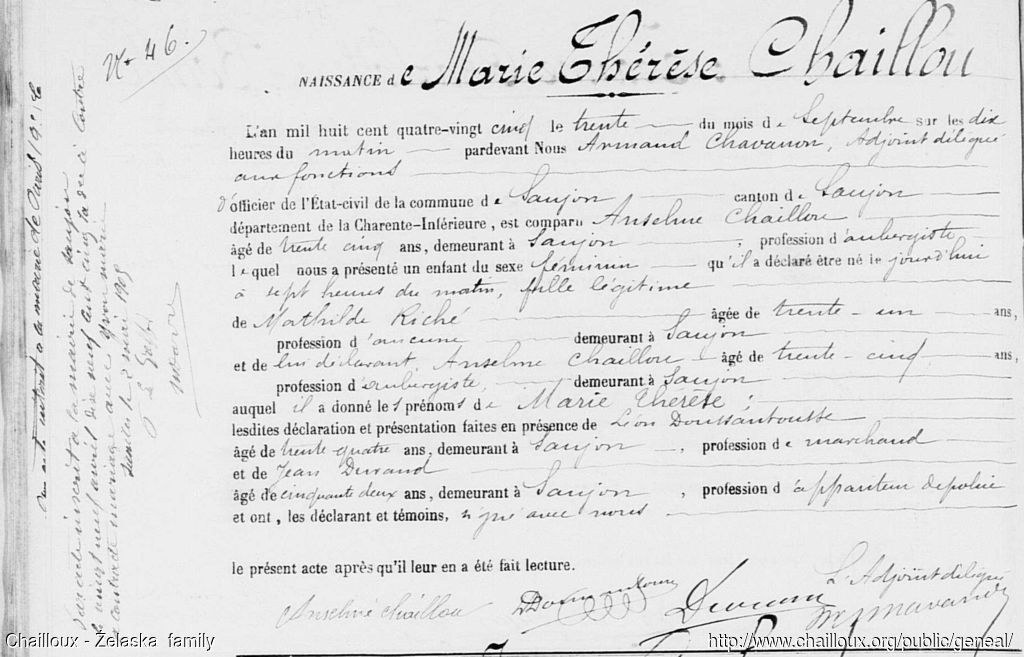 N° 46.
NAISSANCE de Marie Thérèse Chaillou
L'an mil huit cent quatre-vingt cinq le trente du mois de Septembre sur les dix
heures du matin pardevant Nous Armand Chavanon, Adjoint délégué
aux fonctions
d'officier de l'État-civil de la commune de Saujon canton de Saujon
département de la Charente-Inférieure, est comparu Anselme Chaillou
âgé de trente cinq ans, demeurant à Saujon, profession d'aubergiste
lequel nous a présenté un enfant du sexe féminin qu'il a déclaré être né le jourd'hui
à sept heures du matin, fille légitime
de Mathilde Riché âgée de trente-un ans,
profession d'aucune demeurant à Saujon
et de lui déclarant, Anselme Chaillou âgé de trente-cinq ans,
profession d'aubergiste, demeurant à Saujon
auquel il a donné les prénoms de Marie Thérèse;
lesdites déclaration et présentation faites en présence de Léon Doussantousse
âgé de trente quatre ans, demeurant à Saujon, profession de marchand
et de Jean Durand
âgé de cinquante deux ans, demeurant à Saujon, profession d'appariteur de police
et ont, les déclarant et témoins, signé avec nous
le présent acte après qu'il leur en a été fait lecture.
L'Adjoint délégué
Anselme Chaillou
Durand
acte inscrit à la mairie de Saujon
le vingt neuf avril dix neuf cent cinq la dée ci contre
a contracté mariage avec Yvon
Saintes le 2 mai 1905
à la mairie de Paris
Chailloux - Żelaska family
http://www.chailloux.org/public/geneal/